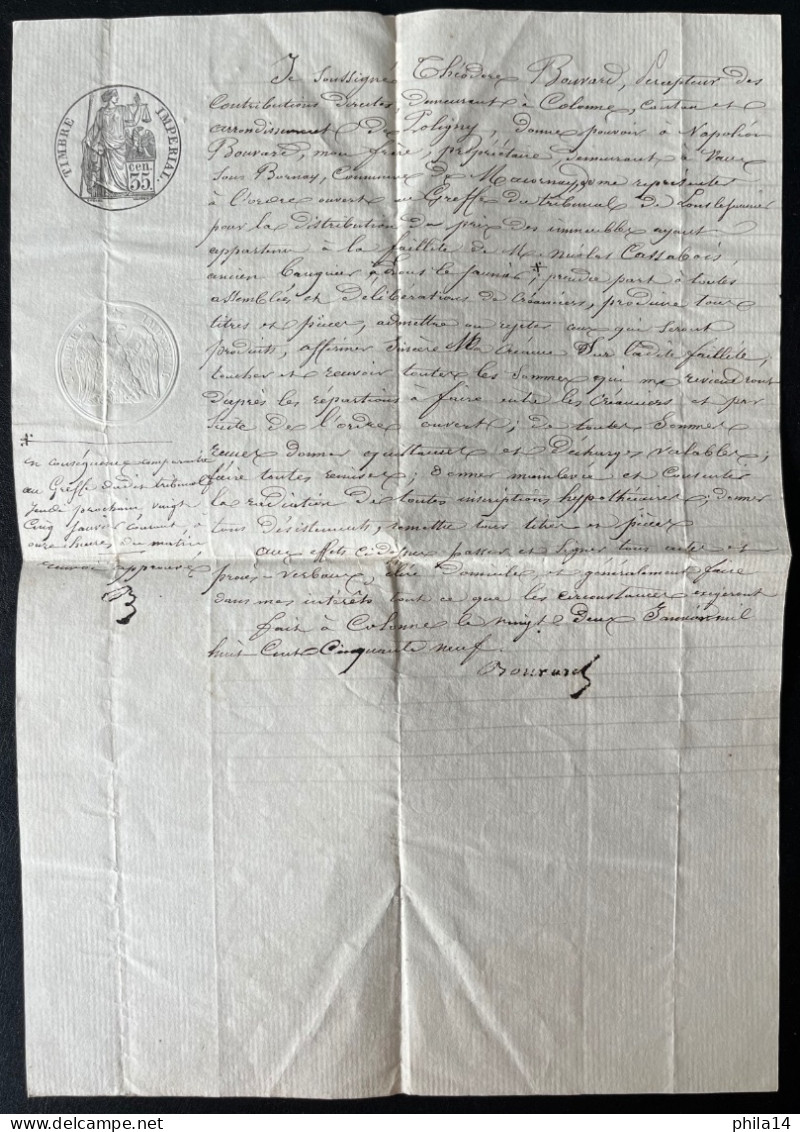 TIMBRE IMPERIAL.
35 cen.
Je soussigné Théodore Bouvard, percepteur des
Contributions directes, demeurant à Colonne, canton et
arrondissement de Poligny, donne pouvoir à Napoléon
Bouvard, mon frère, propriétaire, demeurant à Vaux
sous Bornay, Commune de Macornay, de me représenter
à l'ordre ouvert au Greffe du tribunal de Lons le saunier
pour la distribution du prix des immeubles ayant
appartenu à la faillite de M. Nicolas Cassabois,
ancien banquier à Lons le saunier *, prendre part à toutes
assemblées et délibérations de Créanciers, produire tous
titres et pièces, admettre ou rejeter ceux qui seront
produits, affirmer sincère Ma Créance sur la dite faillite,
toucher et recevoir toutes les sommes qui me reviendront
d'après les répartitions à faire entre les Créanciers et par
suite de l'ordre ouvert; de toutes sommes
reçues donner quittances et Décharges valables;
faire toutes remises; donner mainlevée et consentir
la radiation de toutes inscriptions hypothécaires; donner
tous désistements, remettre tous titres et pièces
aux effets ci-dessus passer et signer tous actes et
procès-verbaux, élire domicile, et généralement faire
dans mes intérêts tout ce que les circonstances exigeront
fait à Colonne le vingt-deux Janvier mil
huit Cent Cinquante neuf.
Bouvard
*
en conséquence comparaître
au Greffe dudit tribunal
jeudi prochain, vingt
Cinq janvier courant, à
onze heures du matin
renvoi approuvé
B
phila14